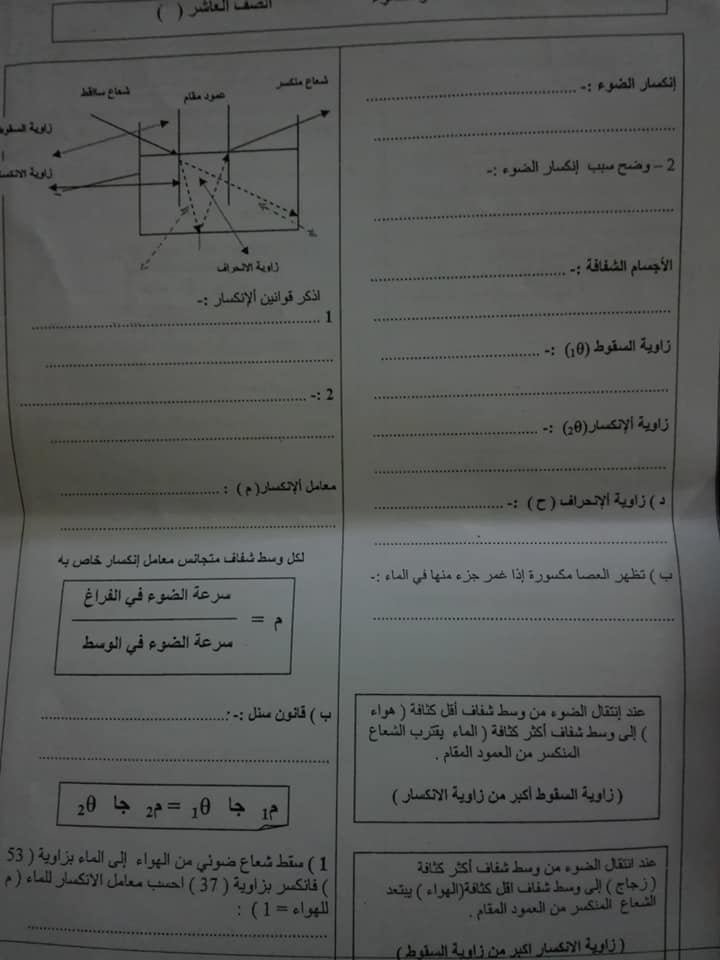 الصف العاشر ( )
إنكسار الضوء :- ........................................
........................................
2 – وضح سبب إنكسار الضوء :-
........................................
الأجسام الشفافة :- ........................................
........................................
زاوية السقوط (θ1) :- ........................................
........................................
زاوية ألإنكسار(θ2) :- ........................................
........................................
د ) زاوية ألإنحراف ( ح ) :- ........................................
........................................
ب ) تظهر العصا مكسورة إذا غمر جزء منها في الماء :-
........................................
عند إنتقال الضوء من وسط شفاف أقل كثافة ( هواء
) إلى وسط شفاف أكثر كثافة ( الماء يقترب الشعاع
المنكسر من العمود المقام .
( زاوية السقوط أكبر من زاوية الانكسار )
عند انتقال الضوء من وسط شفاف أكثر كثافة
( زجاج ) إلى وسط شفاف اقل كثافة(الهواء ) يبتعد
الشعاع المنكسر من العمود المقام .
( زاوية الانكسار اكبر من زاوية السقوط )
شعاع منكسر
عمود مقام
شعاع ساقط
زاوية السقوط
زاوية الانكسار
زاوية الانحراف
اذكر قوانين ألإنكسار :-
1 ........................................
........................................
2 :- ........................................
........................................
معامل ألإنكسار( م ) : ........................................
........................................
لكل وسط شفاف متجانس معامل إنكسار خاص به
سرعة الضوء في الفراغ
م =
سرعة الضوء في الوسط
ب ) قانون سنل :- ........................................
........................................
م1 جا θ1 = م2 جا θ2
1 ) سقط شعاع ضوئي من الهواء إلى الماء بزاوية ( 53
) فانكسر بزاوية ( 37 ) احسب معامل الانكسار للماء ( م
للهواء = 1 ) :
........................................